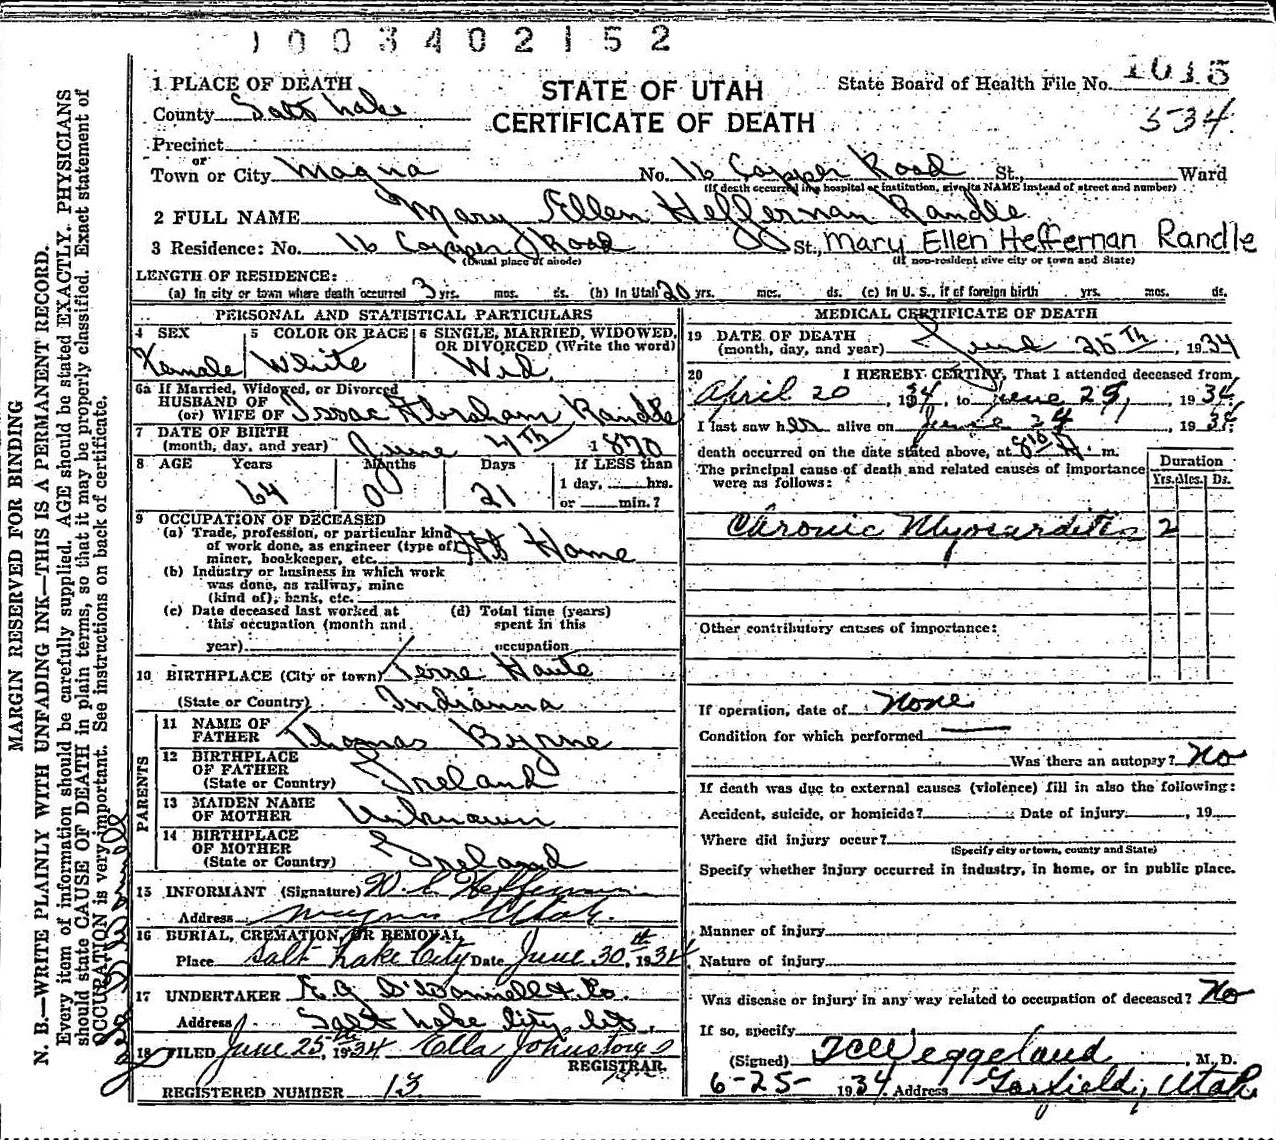 1003402152
1 PLACE OF DEATH
STATE OF UTAH
State Board of Health File No. 1015
County Salt Lake
CERTIFICATE OF DEATH
534
Precinct
or
Town or City Magna No. 16 Copper Road St., Ward
(If death occurred in a hospital or institution, give its NAME instead of street and number)
2 FULL NAME Mary Ellen Heffernan Randle
3 Residence: No. 16 Copper Road St., Mary Ellen Heffernan Randle
(Usual place of abode) (If non-resident give city or town and State)
LENGTH OF RESIDENCE:
(a) In city or town where death occurred 3 yrs. mos. ds. (b) In Utah 20 yrs. mos. ds. (c) In U. S., if of foreign birth yrs. mos. ds.
PERSONAL AND STATISTICAL PARTICULARS
4 SEX 5 COLOR OR RACE 6 SINGLE, MARRIED, WIDOWED, OR DIVORCED (Write the word)
Female White Wid.
6a If Married, Widowed, or Divorced
HUSBAND OF
(or) WIFE OF Isaac Abraham Randle
7 DATE OF BIRTH
(month, day, and year) June 4th 1870
8 AGE Years Months Days If LESS than
64 0 21 1 day, hrs.
or min.?
9 OCCUPATION OF DECEASED
(a) Trade, profession, or particular kind
of work done, as engineer (type of) At Home
miner, bookkeeper, etc.
(b) Industry or business in which work
was done, as railway, mine
(kind of), bank, etc.
(c) Date deceased last worked at (d) Total time (years)
this occupation (month and spent in this
year) occupation
10 BIRTHPLACE (City or town) Terre Haute
(State or Country) Indianna
PARENTS
11 NAME OF
FATHER Thomas Byrne
12 BIRTHPLACE
OF FATHER Ireland
(State or Country)
13 MAIDEN NAME
OF MOTHER Unknown
14 BIRTHPLACE
OF MOTHER Ireland
(State or Country)
15 INFORMANT (Signature) W. E. Heffernan
Address Magna Utah.
16 BURIAL, CREMATION, OR REMOVAL
Place Salt Lake City Date June 30th, 1934
17 UNDERTAKER E. G. O'Donnell & Co.
Address Salt Lake City, Ut.
18 FILED June 25th, 1934 Ella Johnstone
REGISTRAR.
REGISTERED NUMBER 13
MEDICAL CERTIFICATE OF DEATH
19 DATE OF DEATH
(month, day, and year) June 25th, 1934
20 I HEREBY CERTIFY, That I attended deceased from
April 20, 1934, to June 25, 1934.
I last saw her alive on June 24, 1934.
death occurred on the date stated above, at A. m.
The principal cause of death and related causes of importance
were as follows:
Duration
Yrs. Mos. Ds.
Chronic Myocarditis 2
Other contributory causes of importance:
If operation, date of None
Condition for which performed
Was there an autopsy? No
If death was due to external causes (violence) fill in also the following:
Accident, suicide, or homicide? Date of injury, 19
Where did injury occur?
(Specify city or town, county and State)
Specify whether injury occurred in industry, in home, or in public place.
Manner of injury
Nature of injury
Was disease or injury in any way related to occupation of deceased? No
If so, specify
(Signed) T C Weggeland, M. D.
6-25-1934. Address Garfield, Utah
MARGIN RESERVED FOR BINDING
N. B.—WRITE PLAINLY WITH UNFADING INK—THIS IS A PERMANENT RECORD.
Every item of information should be carefully supplied. AGE should be stated EXACTLY. PHYSICIANS
should state CAUSE OF DEATH in plain terms, so that it may be properly classified. Exact statement of
OCCUPATION is very important. See instructions on back of certificate.